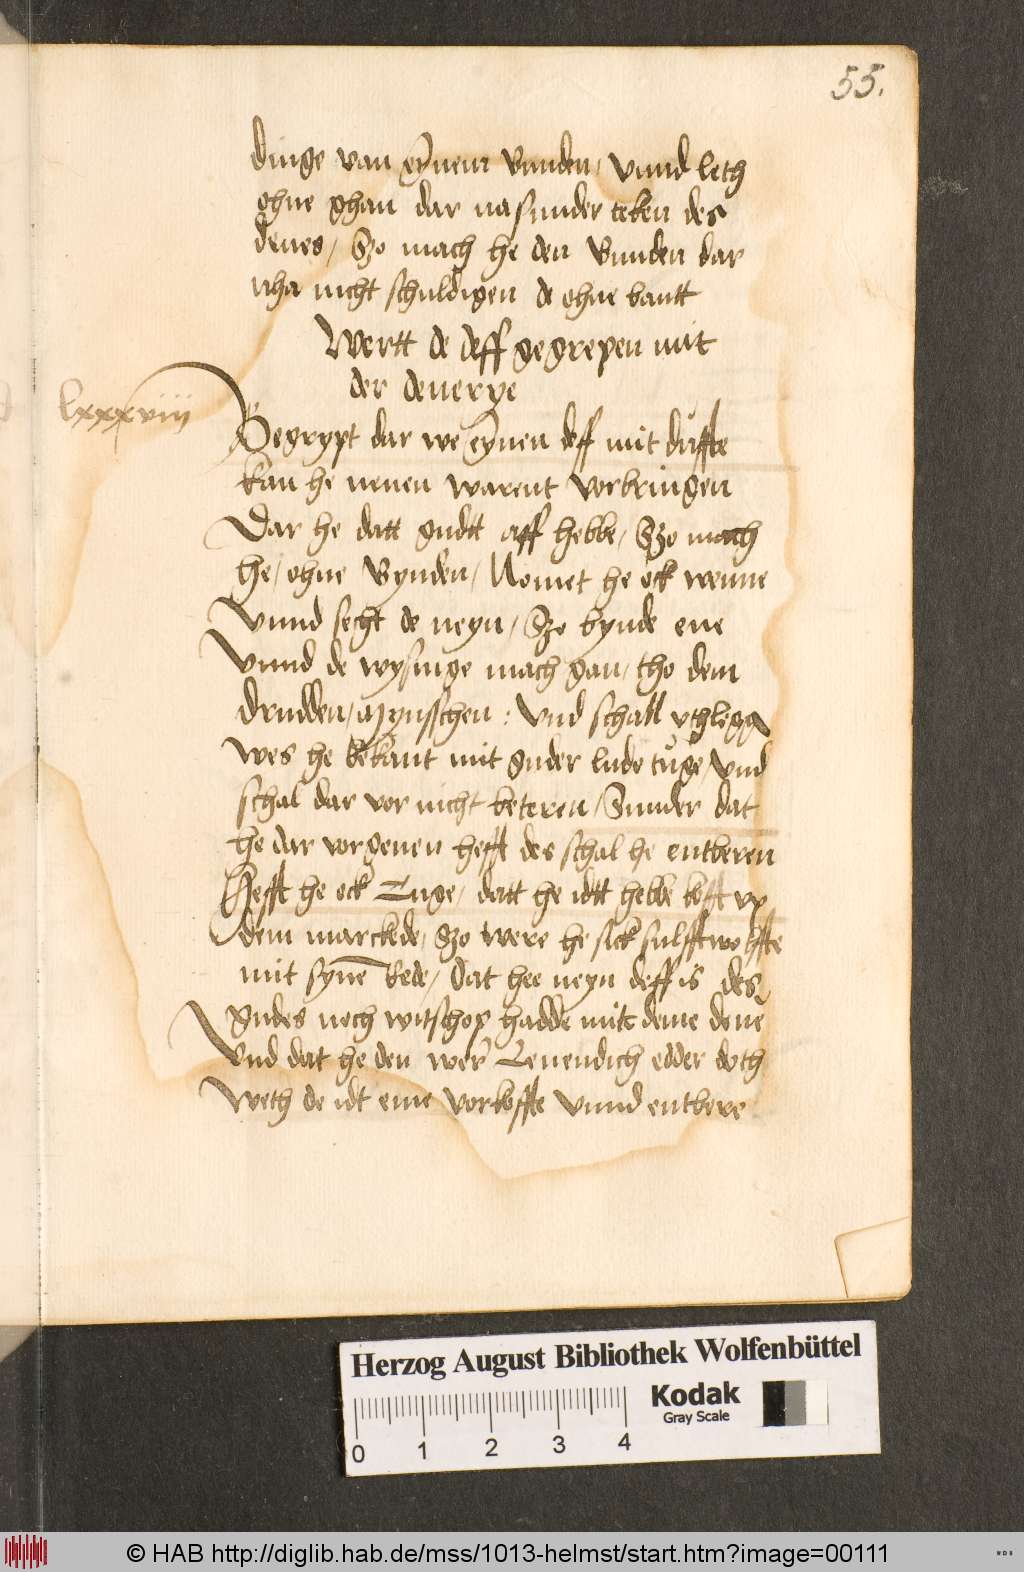 55.
dinge van eynem Vunden, Vnnd leth
ohne ghan dar na sunder teken des
denes, Szo mach he den Vunden dar
nha nicht schuldigen de ohne bantt
Wertt de deff gegrepen mit
der deuerye
lxxxviii
Begrypt dar we eynen deff mit duffte
kan he nenen warent vorbringen
Dar he datt gudtt aff hebbe, Szo mach
he, ohne Bynden, Nomet he ock wenne
Vnnd secht de neyn, Szo bynde ene
Vnnd de wysinge mach gan, tho dem
drudden, Mynsschen : Vnd schall vthlegg
wes he bekant mit guder lude tuge, Vnd
schal dar vor nicht beteren, Sunder dat
he dar vorgeuen hefft des schal he entberen
Hefft he ock Tuge, datt he idtt hebbe kofft vp
dem marckede, Szo were he sick sulfftwoffte
mit syne kede, dat hee neyn deff is des
gudes noch witschop hadde mitt deme deue
Vnd dat he den wer Leuendich edder doth
weth de idt eme vorkoffte Vnnd entbere
Herzog August Bibliothek Wolfenbüttel
Kodak
Gray Scale
0 1 2 3 4
© HAB http://diglib.hab.de/mss/1013-helmst/start.htm?image=00111